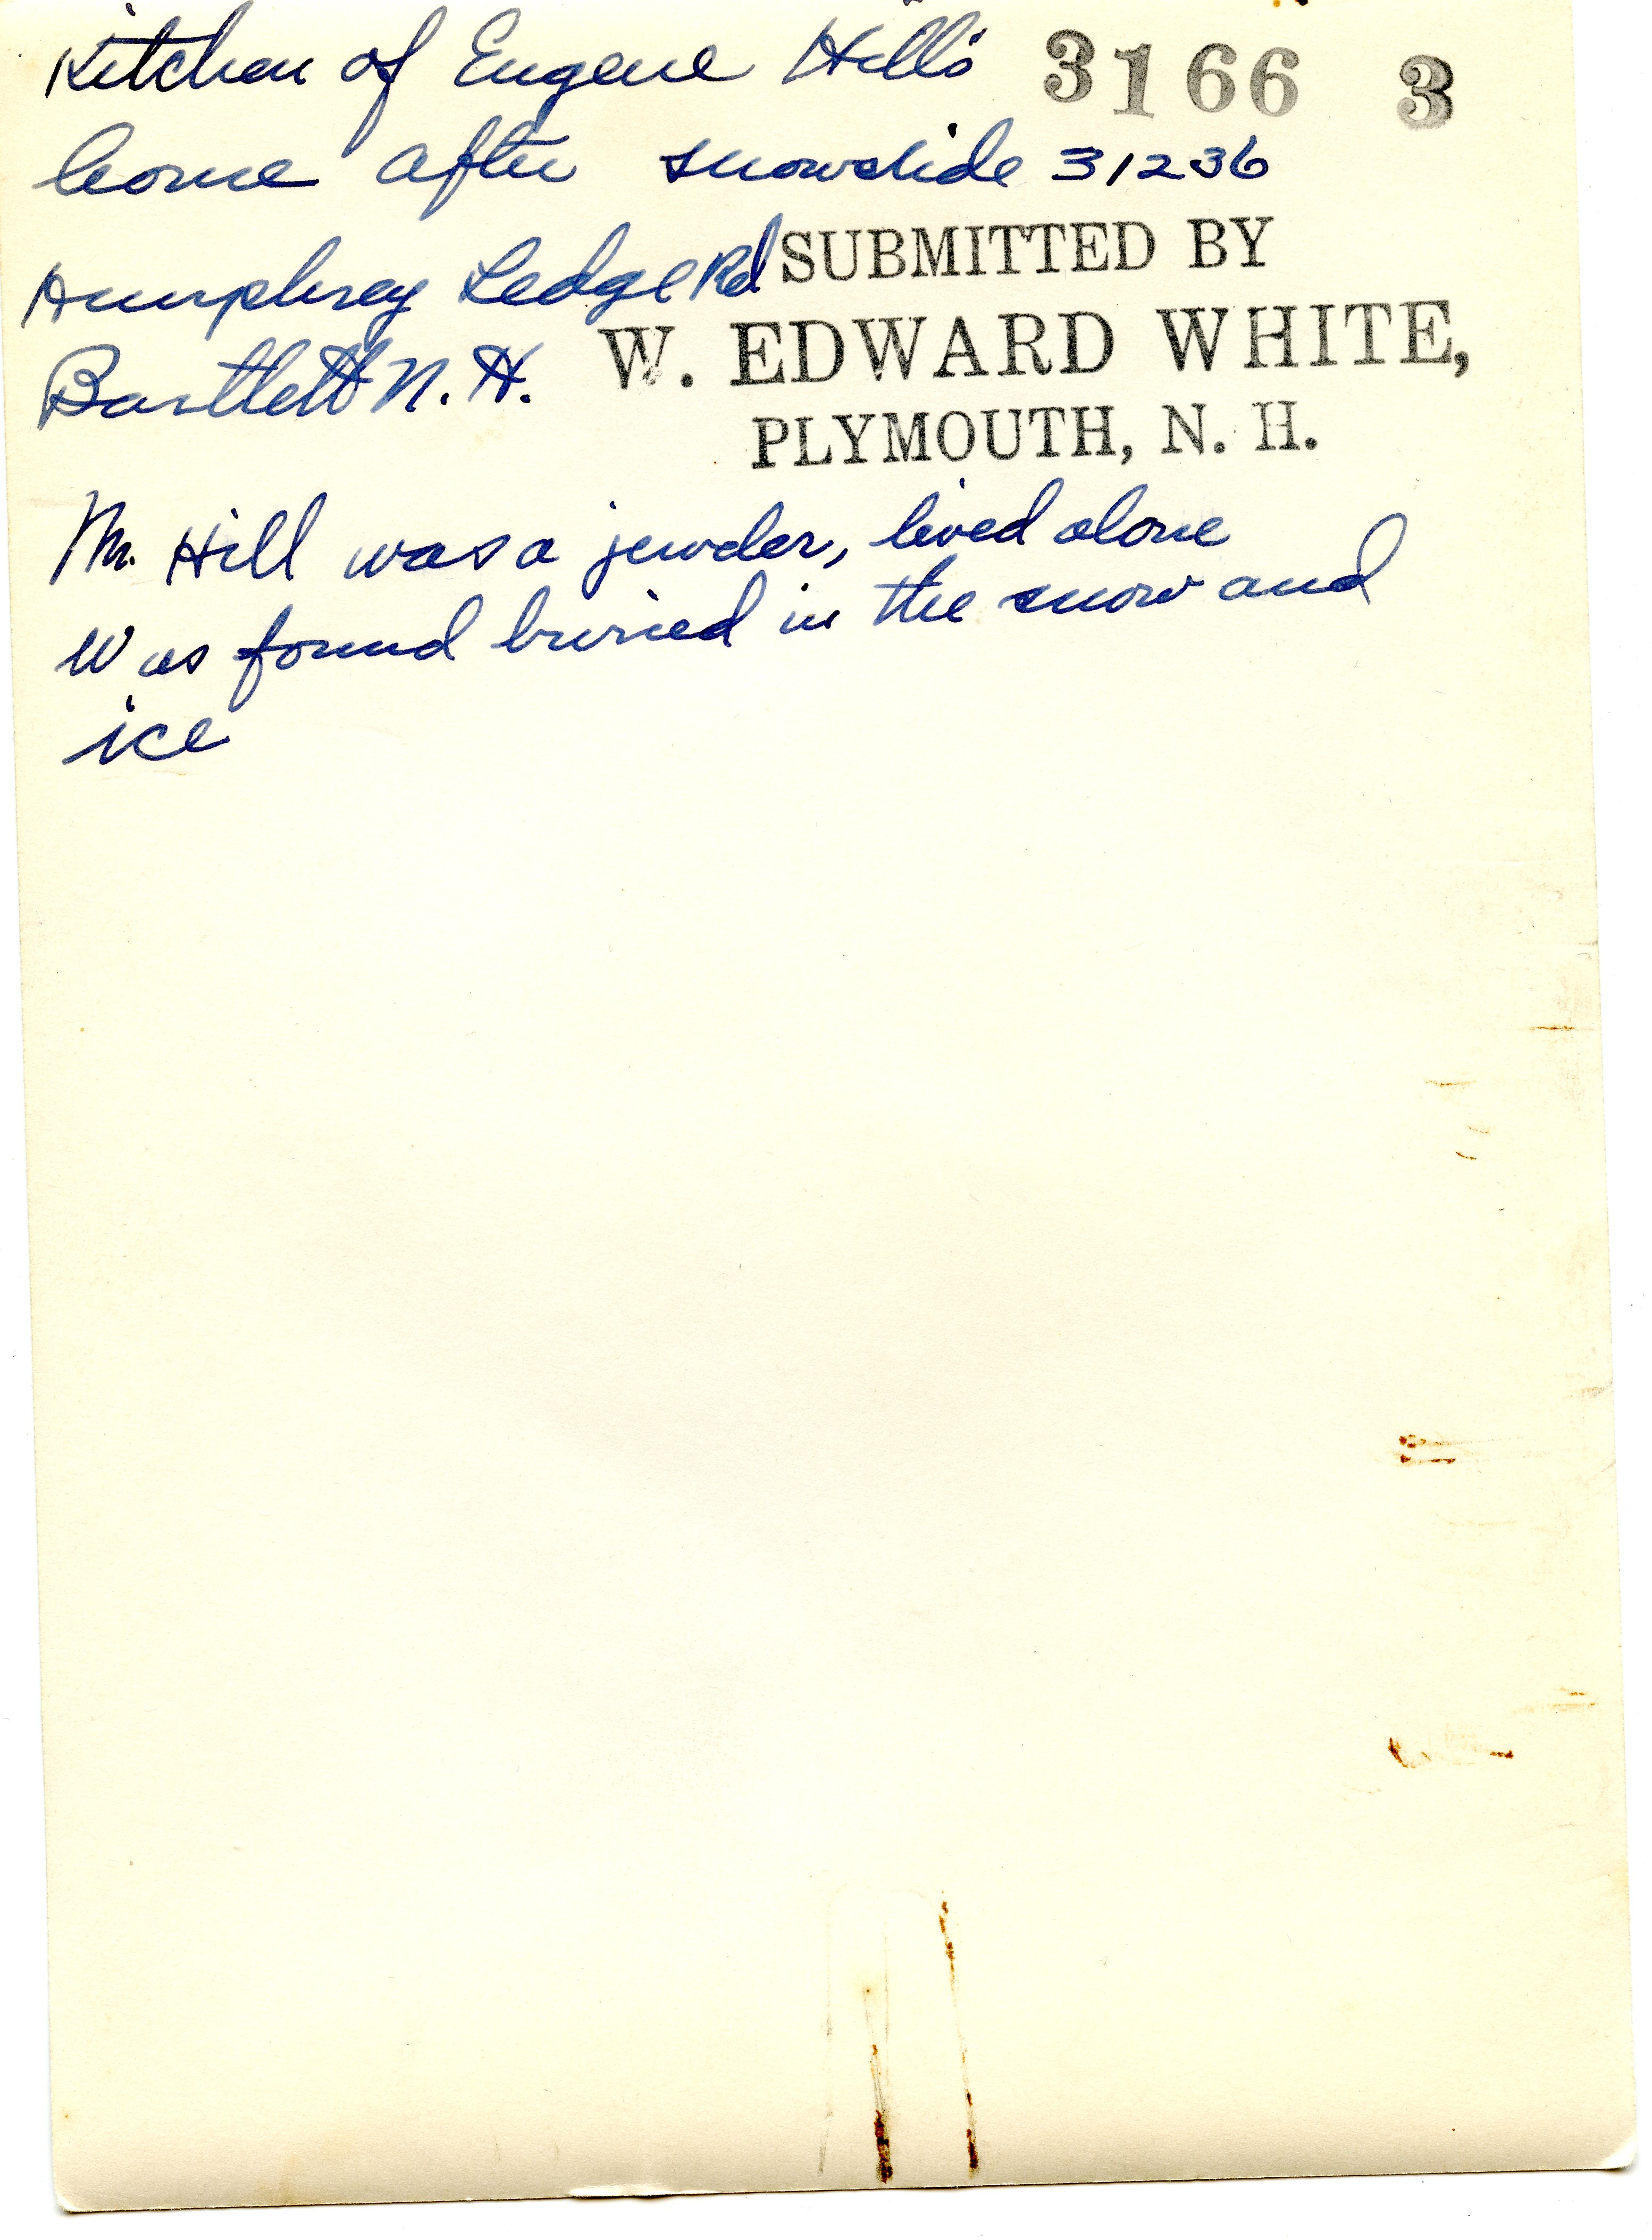 Kitchen of Eugene Hill's 3166 3
home after snowslide 31236
Humphrey Ledge Rd SUBMITTED BY
Bartlett N.H. W. EDWARD WHITE,
PLYMOUTH, N. H.
Mr. Hill was a jeweler, lived alone
Was found buried in the snow and
ice